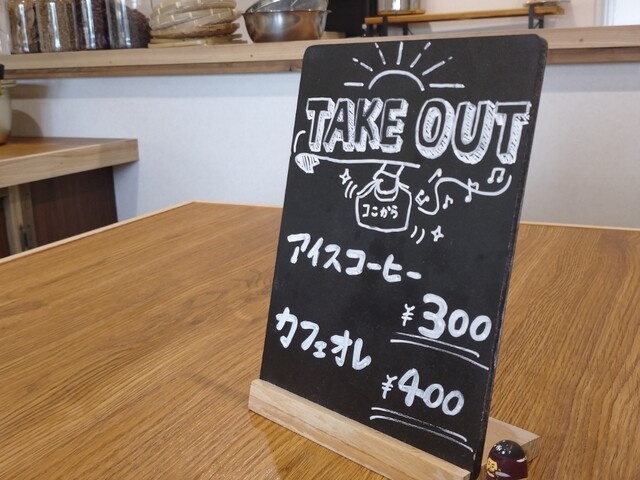 TAKE OUT
つこから
アイスコーヒー
¥300
カフェオレ
¥400